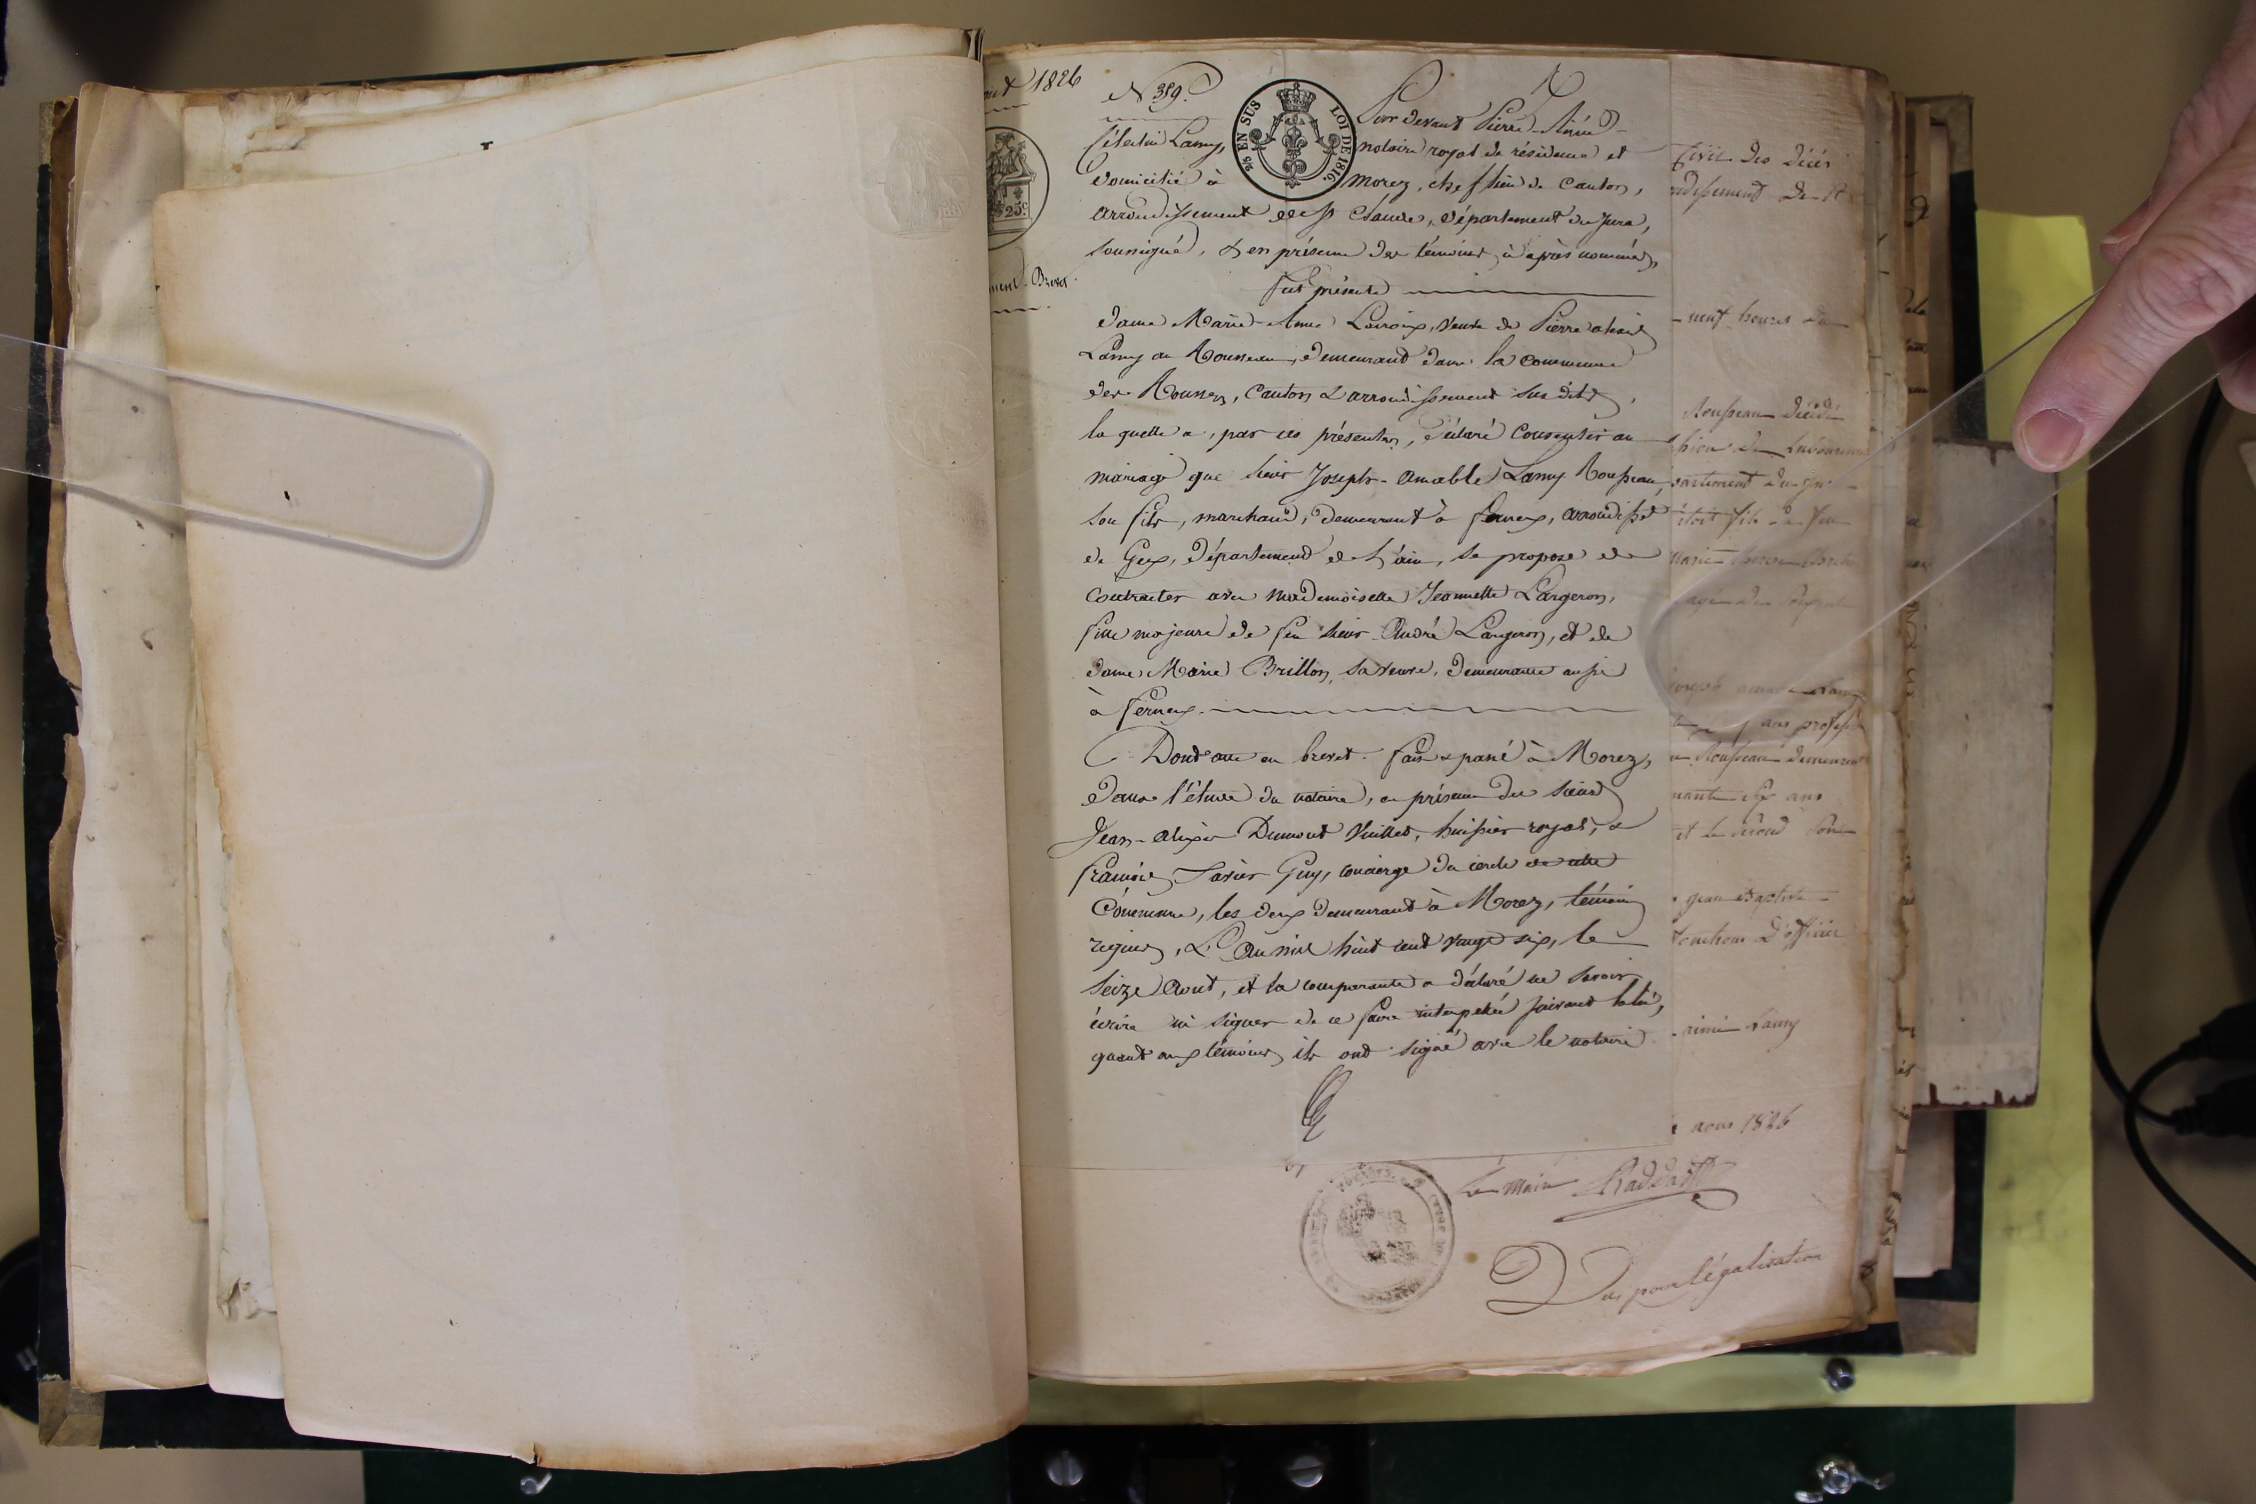 1826
N° 359.
2/5 EN SUS
LOI DE 1816.
25c
Par devant Pierre-Aimé-
Célestin Lamy,
notaire royal de résidence et
domicilié à
Morez, chef lieu de canton,
arrondissement de St Claude, département du Jura,
soussigné, & en présence des témoins ci après nommés,
fut présente
dame Marie-Anne Lacroix, veuve de Pierre
Lamy au Rousseau, demeurant dans la commune
des Rousses, canton & arrondissement sus dits,
la quelle a, par ces présentes, déclaré consentir au
mariage que sieur Joseph-Amable Lamy Rousseau,
son fils, marchand, demeurant à Fernex, arrondisst
de Gex, département de l'ain, se propose de
contracter avec mademoiselle Jeannette Largeron,
fille majeure de feu sieur André Largeron, et de
dame Marie Brillon, sa veuve, demeurante aussi
à Fernex.
Dont acte en brevet. fait & passé à Morez,
dans l'étude du notaire, en présence des sieurs
Jean-Alexis Dumont Vuillet, huissier royal, &
François Xavier Guy, concierge du cercle de cette
Commune, les deux demeurant à Morez, témoins
requis, L'an mil huit cent vingt six, le
seize aout, et la comparante a déclaré ne savoir
écrire ni signer de ce faire interpellée suivant la loi,
quant aux témoins, ils ont signé avec le notaire
Brevet.
Civil des décès
neuf heures du
Rousseau décédé
étoit fils de feu
marie
ans profess
Rousseau demeurant
ans
et le second
jean Baptiste
D'officier
aimé Lamy
aout 1826
Le maire
Vu pour légalisation